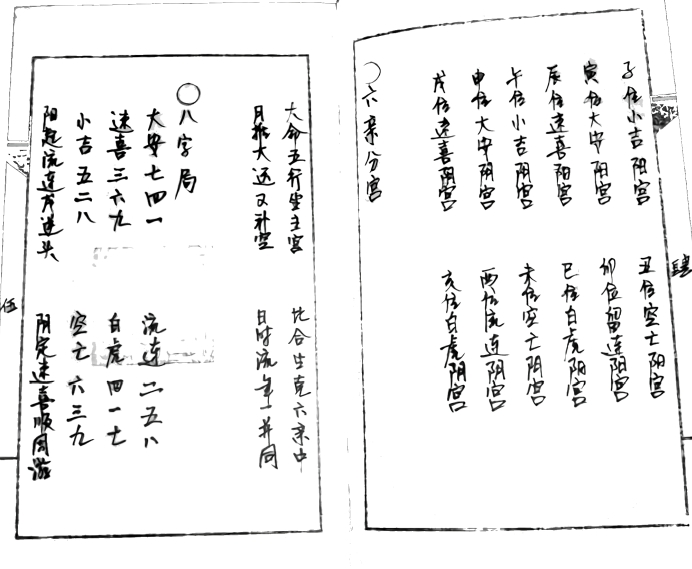 肆
子位小吉阳宫
丑位空亡阳宫
寅位大安阳宫
卯位留连阳宫
辰位速喜阳宫
巳位白虎阳宫
午位小吉阴宫
未位空亡阴宫
申位大安阴宫
酉位流连阴宫
戌位速喜阴宫
亥位白虎阴宫
〇六亲分宫
大命五行坐主宫
比合生克六亲中
月推大运又补空
日时流年一并同
〇八字局
大安七四一
流连二五八
速喜三六九
白虎四一七
小吉五二八
空亡六三九
阳起流连戌逆头
阴定速喜顺周游
伍